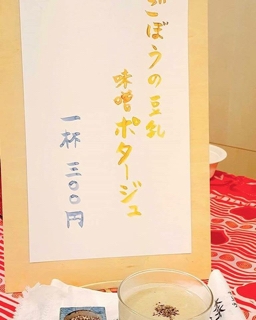 ごぼうの豆乳
味噌ポタージュ
一杯 三〇〇円